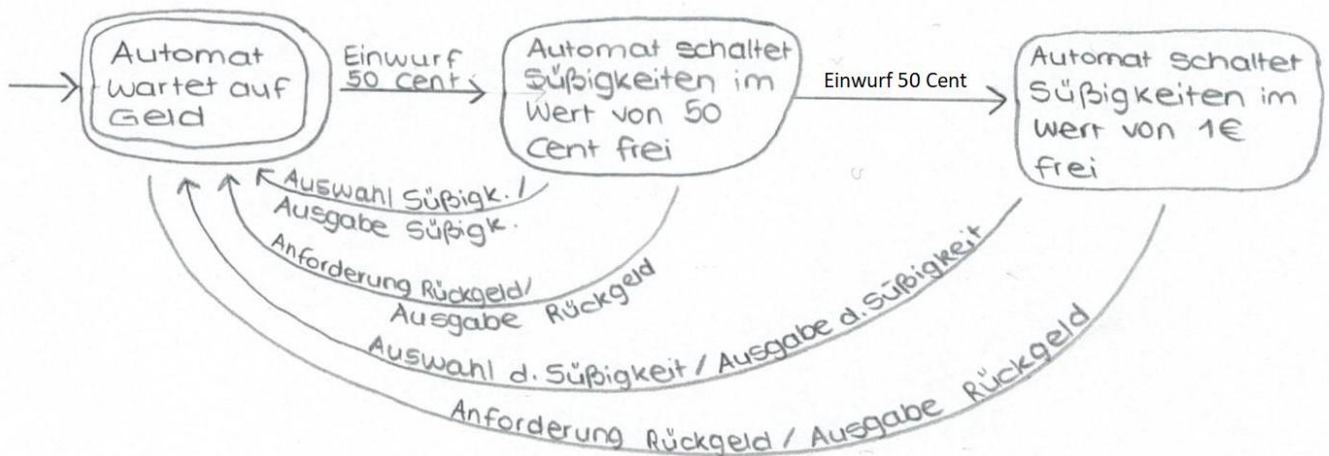 Automat
wartet auf
Geld
Einwurf
50 Cent
Automat schaltet
Süßigkeiten im
Wert von 50
Cent frei
Einwurf 50 Cent
Automat schaltet
Süßigkeiten im
Wert von 1€
frei
Auswahl Süßigk. /
Ausgabe Süßigk.
Anforderung Rückgeld/
Ausgabe Rückgeld
Auswahl d. Süßigkeit / Ausgabe d. Süßigkeit
Anforderung Rückgeld / Ausgabe Rückgeld